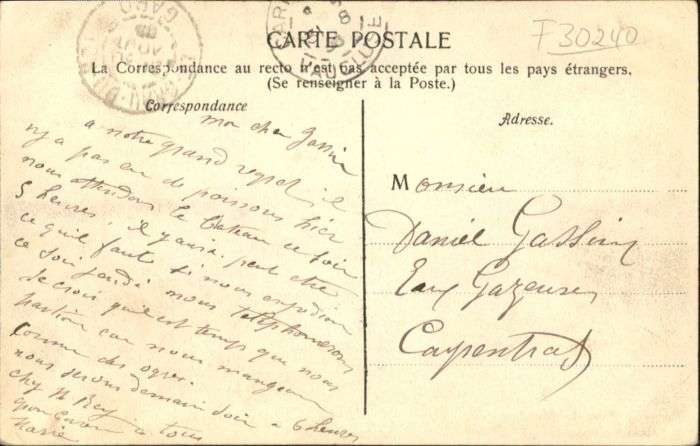 F30240
CARTE POSTALE
La Correspondance au recto n'est pas acceptée par tous les pays étrangers.
(Se renseigner à la Poste.)
Correspondance
Adresse.
mon cher Gassin
a notre grand regret il
n'y a pas eu de poissons hier
nous attendons le bateau ce soir
5 heures, il y aura peut être
ce qu'il faut si nous expédions
ce soir jeudi nous telephonerons
Je crois qu'il est temps que nous
partions car nous mangeons
comme des ogres.
nous serons demain soir a 6 heures
chez M Rey
a tous
Marie
Monsieur
Daniel Gassin
Eaux Gazeuses
Carpentras
GARD
VAUCLUSE